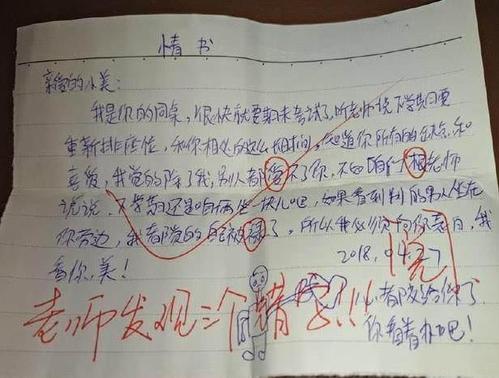 情书
亲爱的小美：
我是你的同桌，很快就要期末考试了，听老师说下学期要
重新排座位，和你相处的这么长时间，知道你所有的缺点和
喜爱，我觉的除了我，别人都受不了你，不如咱们一起老师
说说，下学期还是咱俩坐一块儿吧，如果看到别的男人坐在
你旁边，我都觉的自己被绿了，所以我必须向你表白，我
看你，美！
2018.04.
老师发现三个错
同 心都改给你了
你看着办吧！